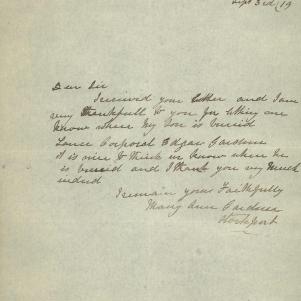 Sept 3rd/19
Dear Sir
I received your letter and I am
very thankfull to you for letting me
know where my Son is buried
Lance Corporal Edgar Gardner
it is nice to think we know where he
is buried and I thank you very much
indeed
I remain yours Faithfully
Mary Ann Gardner
Stockport